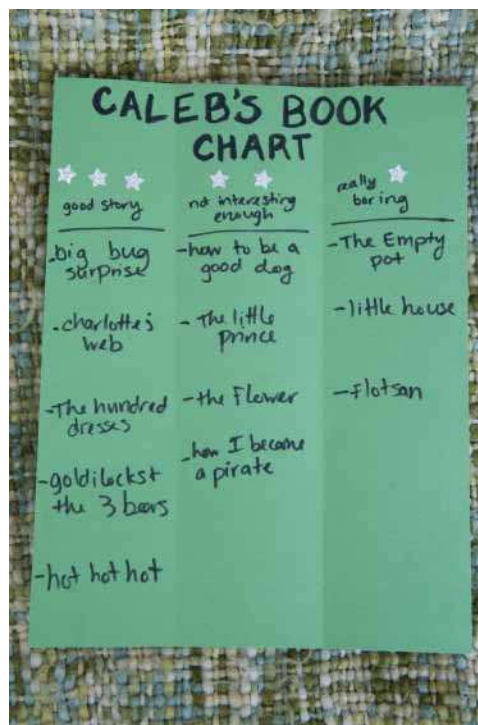 CALEB'S BOOK
CHART
good story
-big bug
surprise
-charlotte's
web
-The hundred
dresses
-goldilocks+
the 3 bears
-hot hot hot
not interesting
enough
-how to be a
good dog
-The little
prince
-the Flower
-how I became
a pirate
really
boring
-The Empty
pot
-little house
-Flotsan